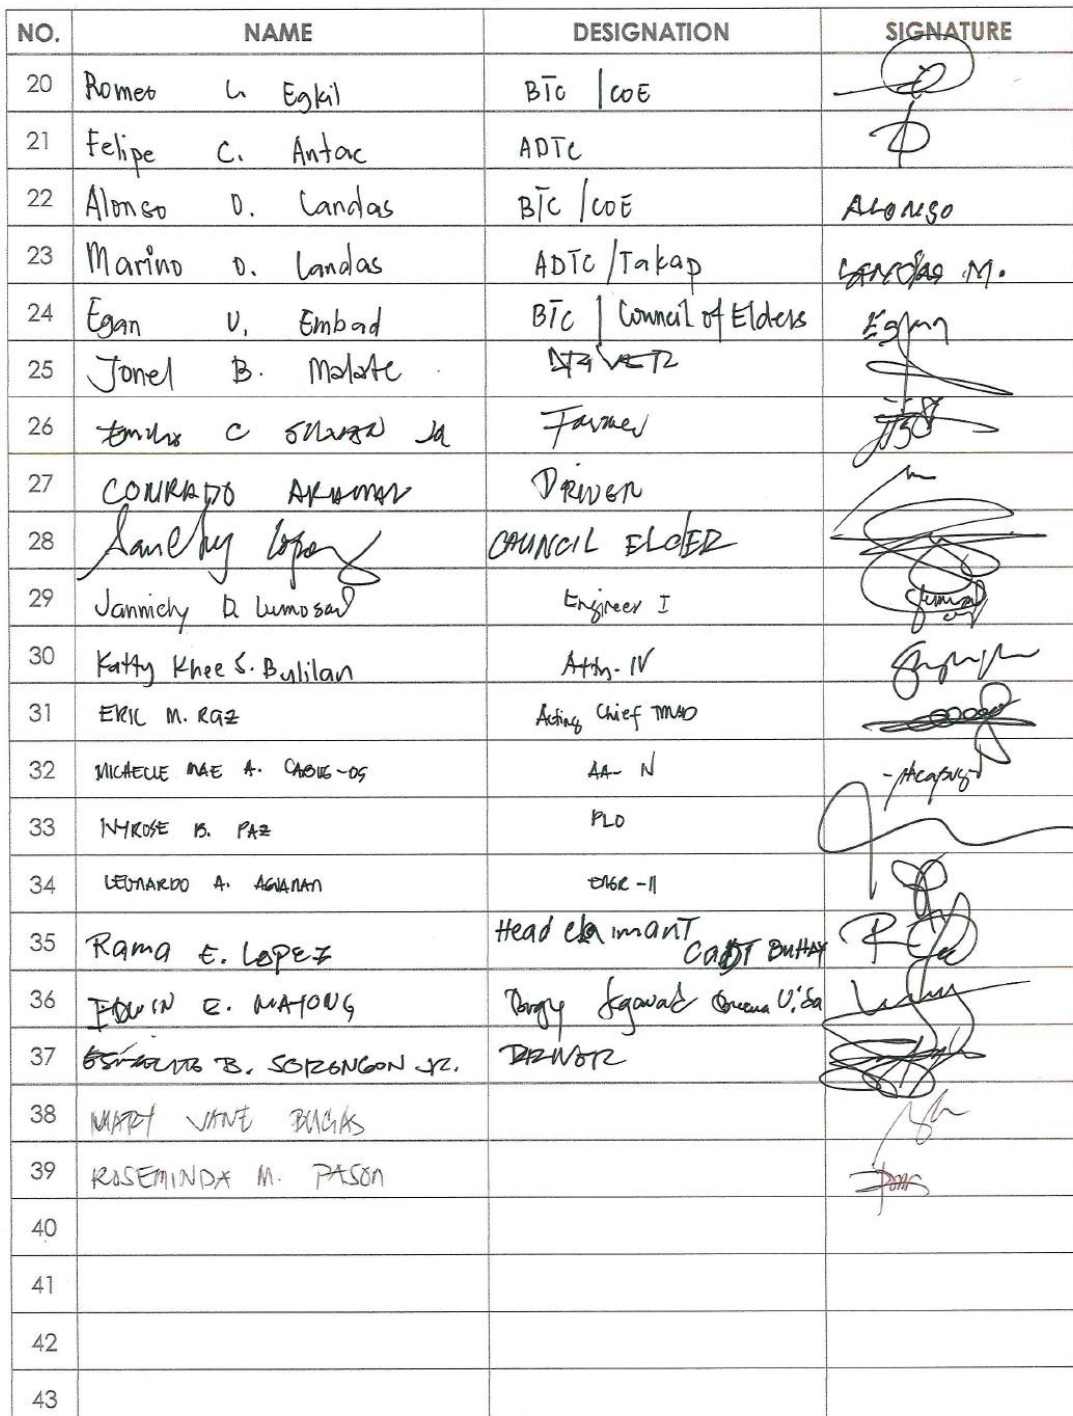 NO. NAME DESIGNATION SIGNATURE
20 Romeo L. Egkil BTC / COE
21 Felipe C. Antac ADTC
22 Alonso D. Landas BTC / COE ALONSO
23 Marino D. Landas ADTC / Takap LANDAS M.
24 Egan U. Embad BTC / Council of Elders Egan
25 Jonel B. Malate DRIVER
26 C Jr Farmer
27 CONRADO DRIVER
28 Lopez COUNCIL ELDER
29 Jannichy D. Lumosad Engineer I
30 Katty Khee S. Bulilan Atty. IV
31 ERIC M. RAZ Acting Chief TMSD
32 MICHELLE MAE A. CABUG-OS AA- IV
33 NYROSE B. PAZ PLO
34 LEONARDO A. ENGR -II
35 Rama E. Lopez Head claimant CADT BUHAY
36 EDWIN E. MAYONG Brgy Kagawad
37 B. SORONGON JR. DRIVER
38 MARY JANE BUGAS
39 ROSEMINDA M. PASON
40
41
42
43